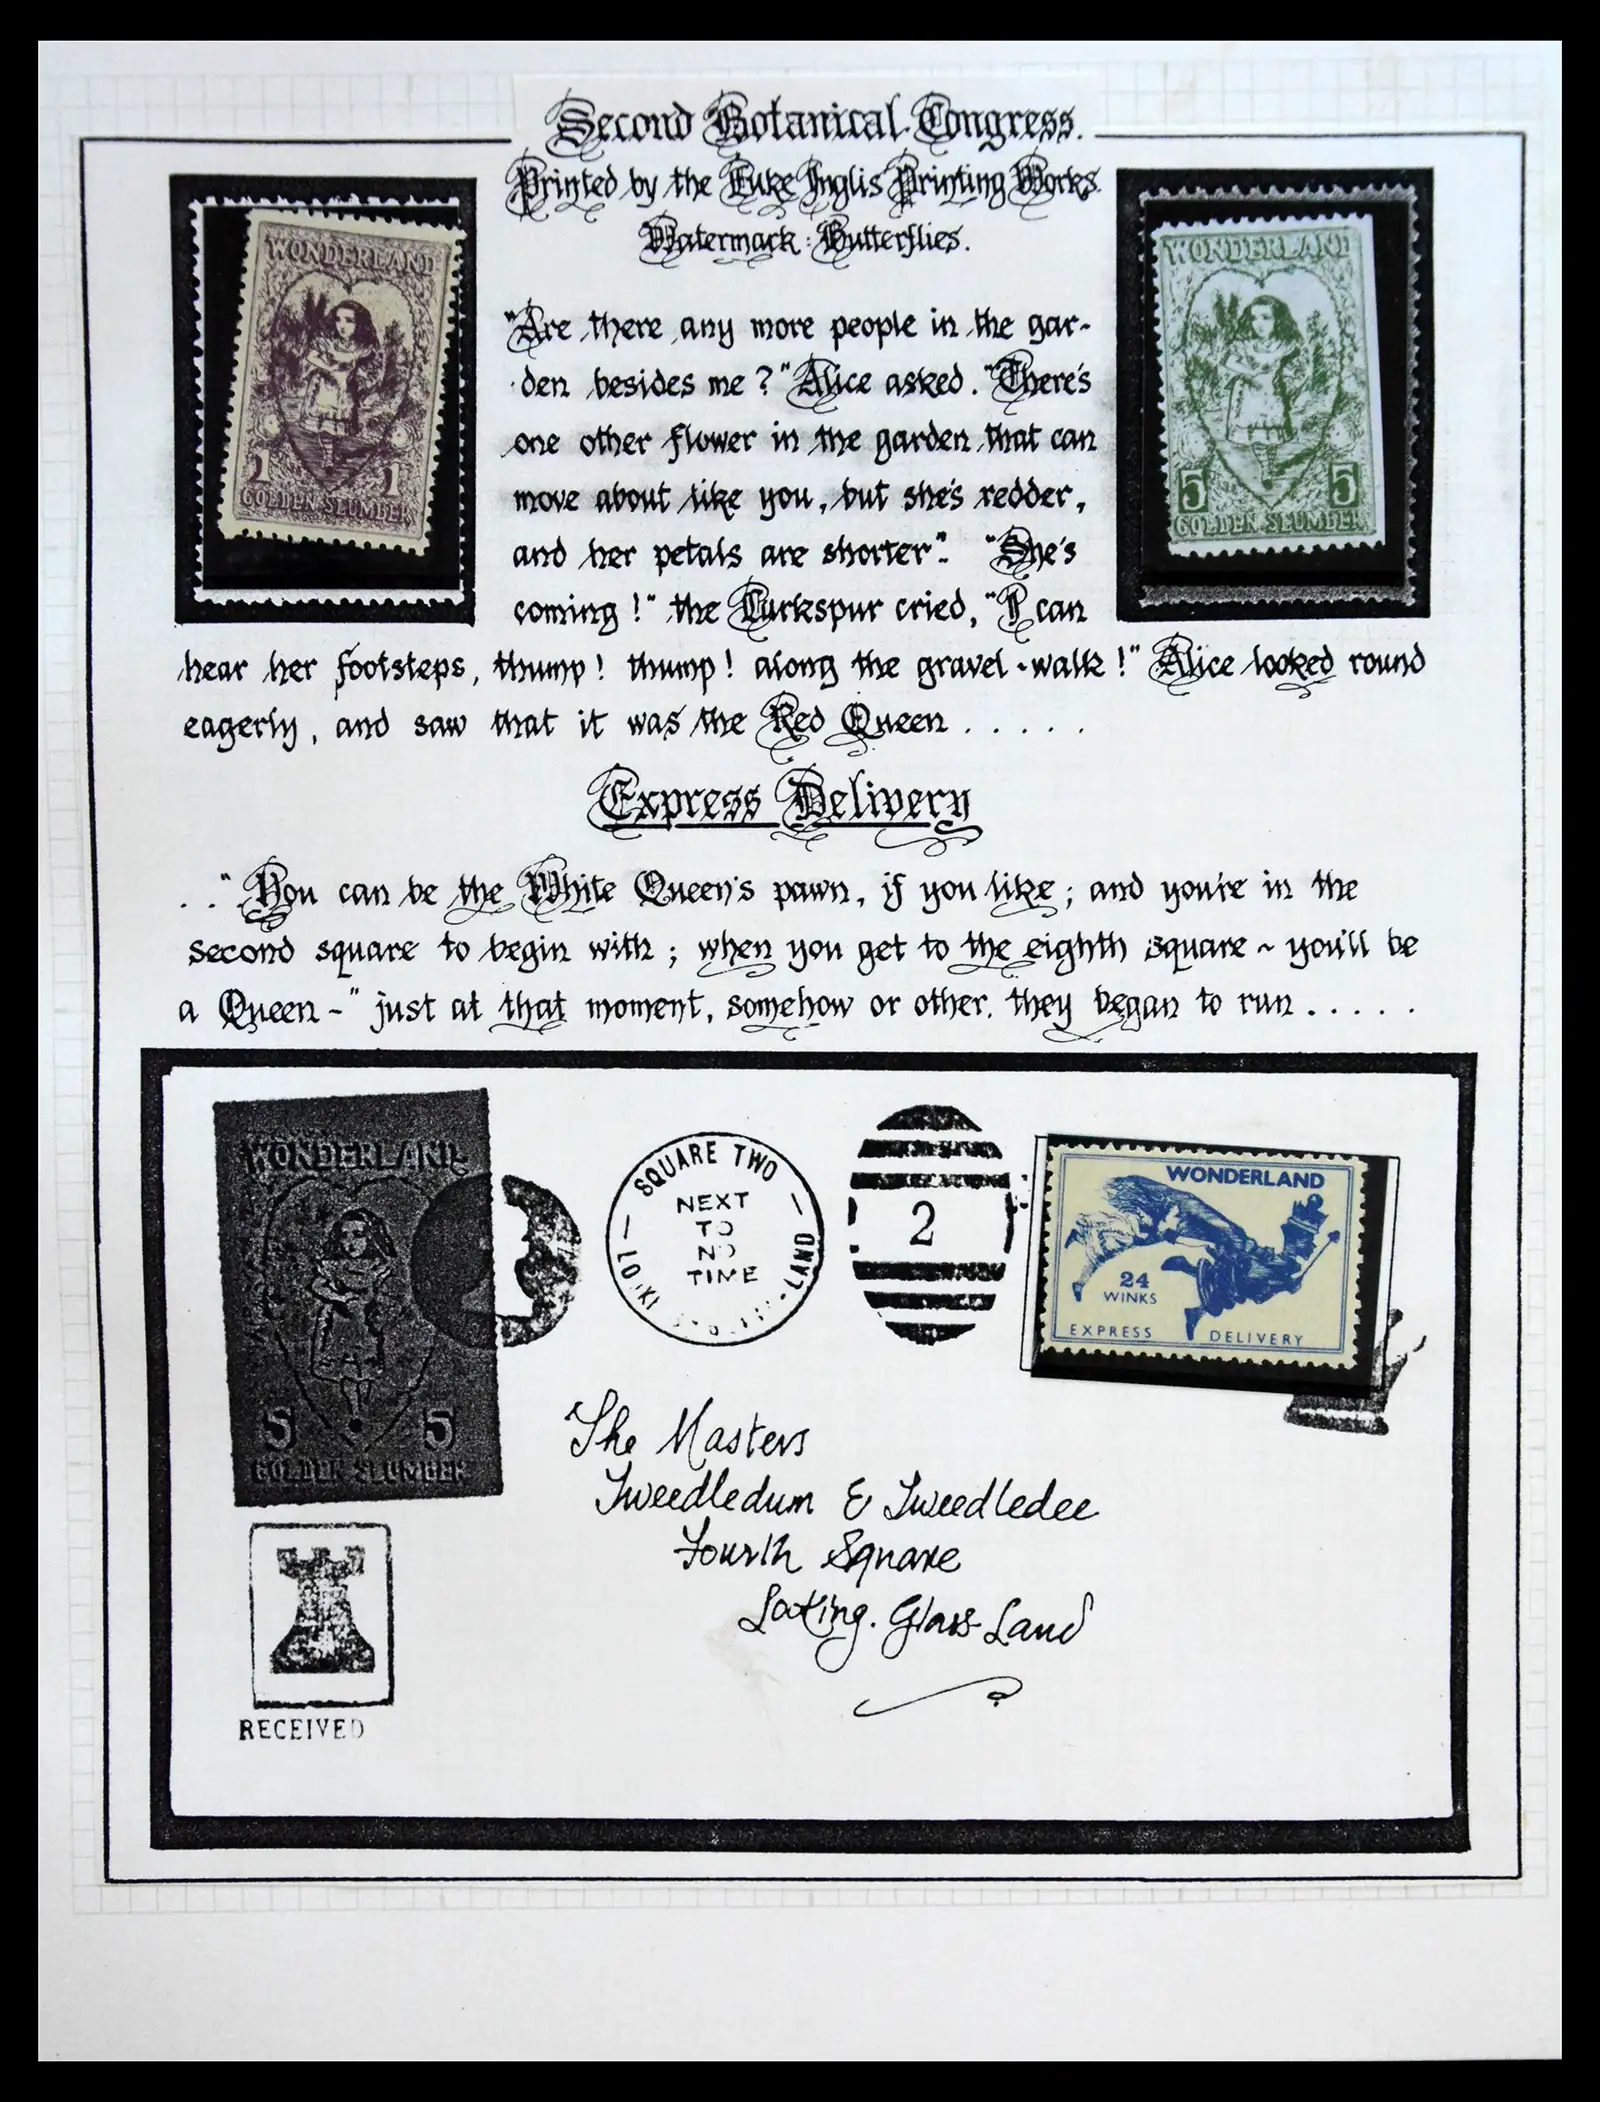 Second Botanical Congress.
Printed by the Luke Inglis Printing Works.
Watermark: Butterflies.
WONDERLAND
1 1
GOLDEN SLUMBER
WONDERLAND
5 5
GOLDEN SLUMBER
"Are there any more people in the gar-
den besides me?" Alice asked. "There's
one other flower in the garden that can
move about like you, but she's redder,
and her petals are shorter". "She's
coming!" the Larkspur cried, "I can
hear her footsteps, thump! thump! along the gravel-walk!" Alice looked round
eagerly, and saw that it was the Red Queen . . . . .
Express Delivery
. . "You can be the White Queen's pawn, if you like; and you're in the
second square to begin with; when you get to the eighth square ~ you'll be
a Queen ~" just at that moment, somehow or other, they began to run . . . . .
WONDERLAND
5 5
GOLDEN SLUMBER
SQUARE TWO
NEXT
TO
NO
TIME
LAND
2
WONDERLAND
24
WINKS
EXPRESS DELIVERY
The Masters
Tweedledum & Tweedledee
Fourth Square
Looking-Glass-Land
RECEIVED